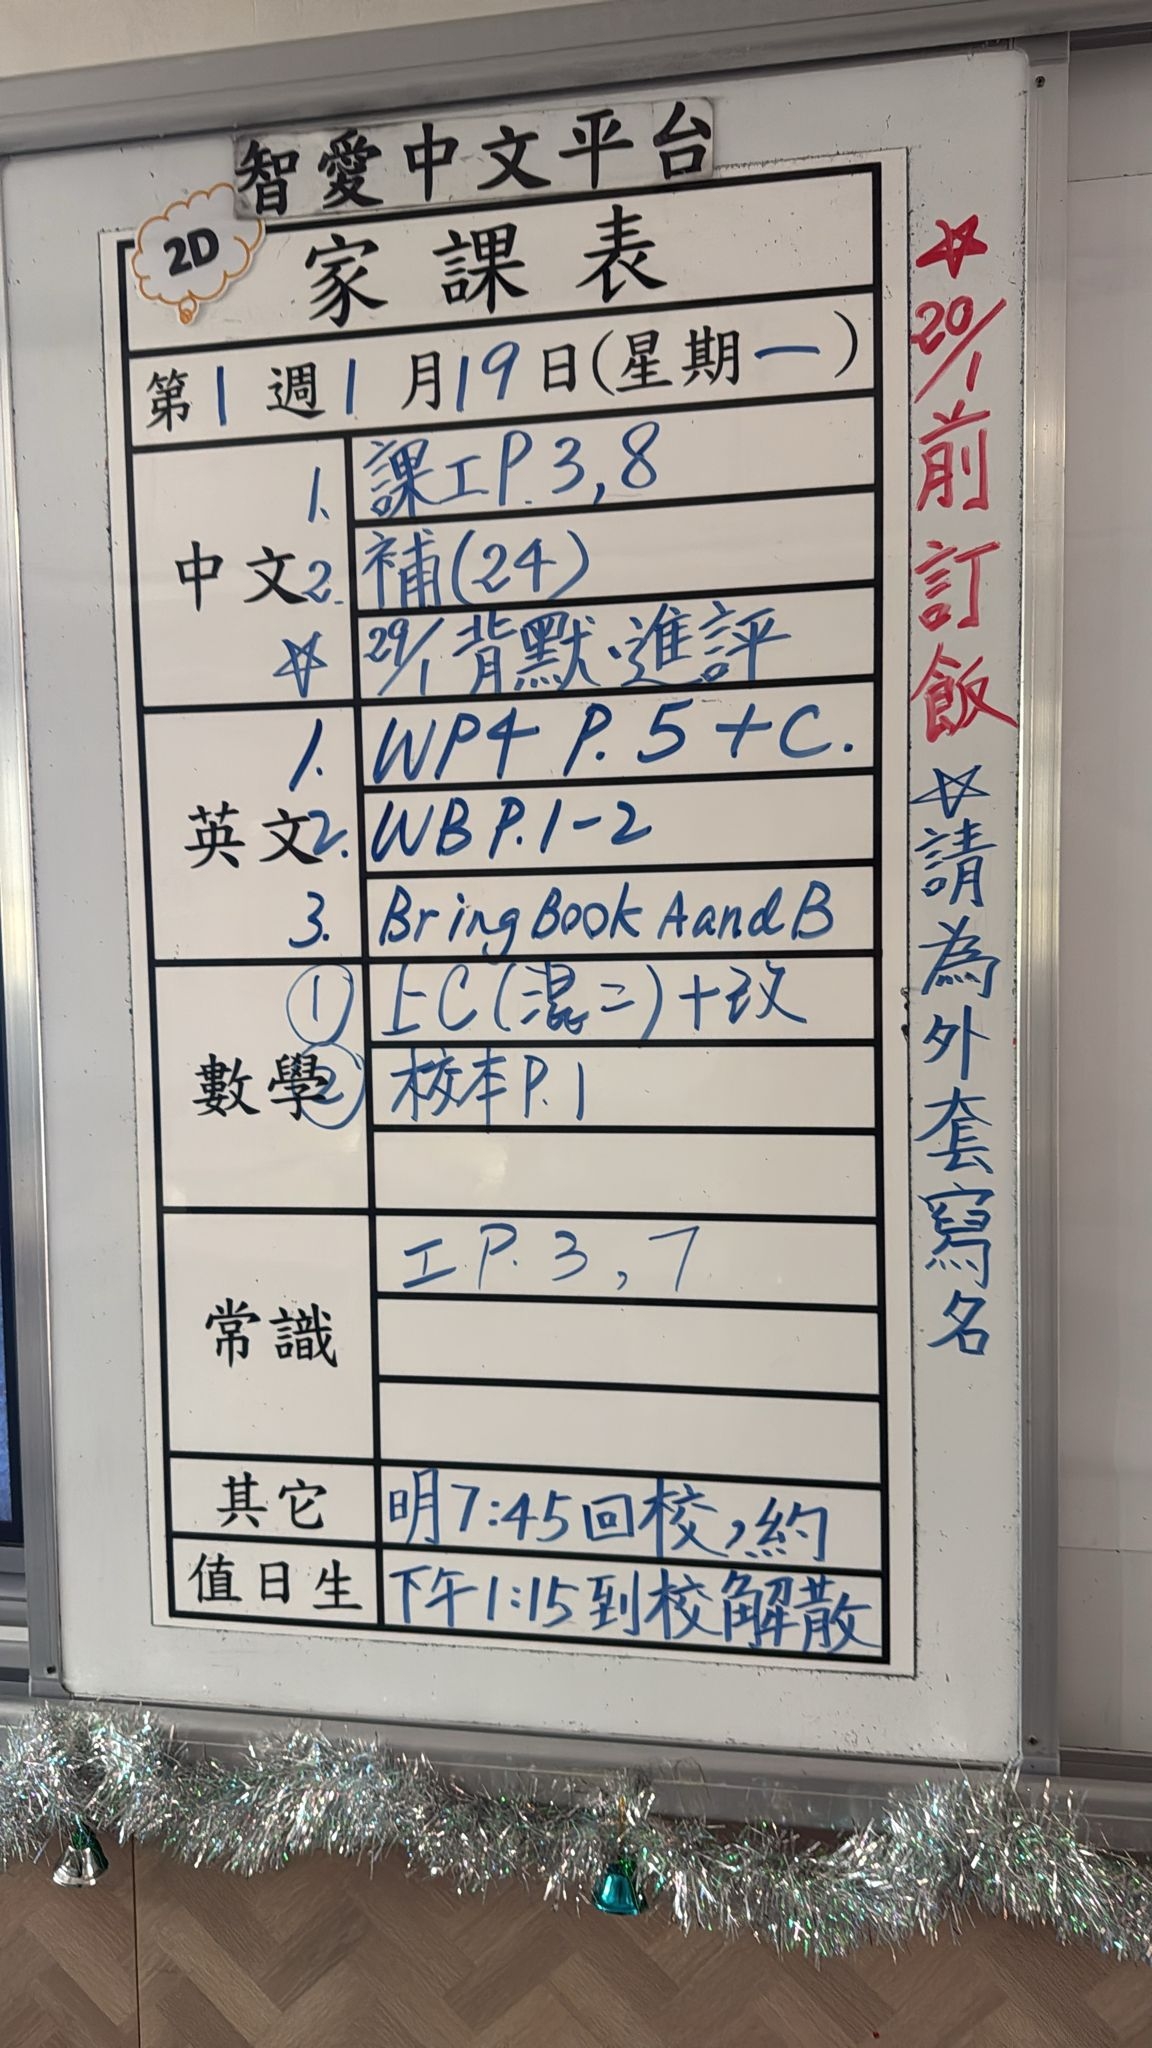 智愛中文平台
2D
家課表
第1週1月19日(星期一)
中文
1. 課工P.3,8
2. 補(24)
☆ 29/1背默、進評
英文
1. WP4 P.5+C.
2. WB P.1-2
3. Bring Book A and B
數學
① 上C(混二)+改
② 校本P.1
常識
工P.3,7
其它
明7:45回校,約
值日生
下午1:15到校解散
☆20/1前訂飯
☆請為外套寫名